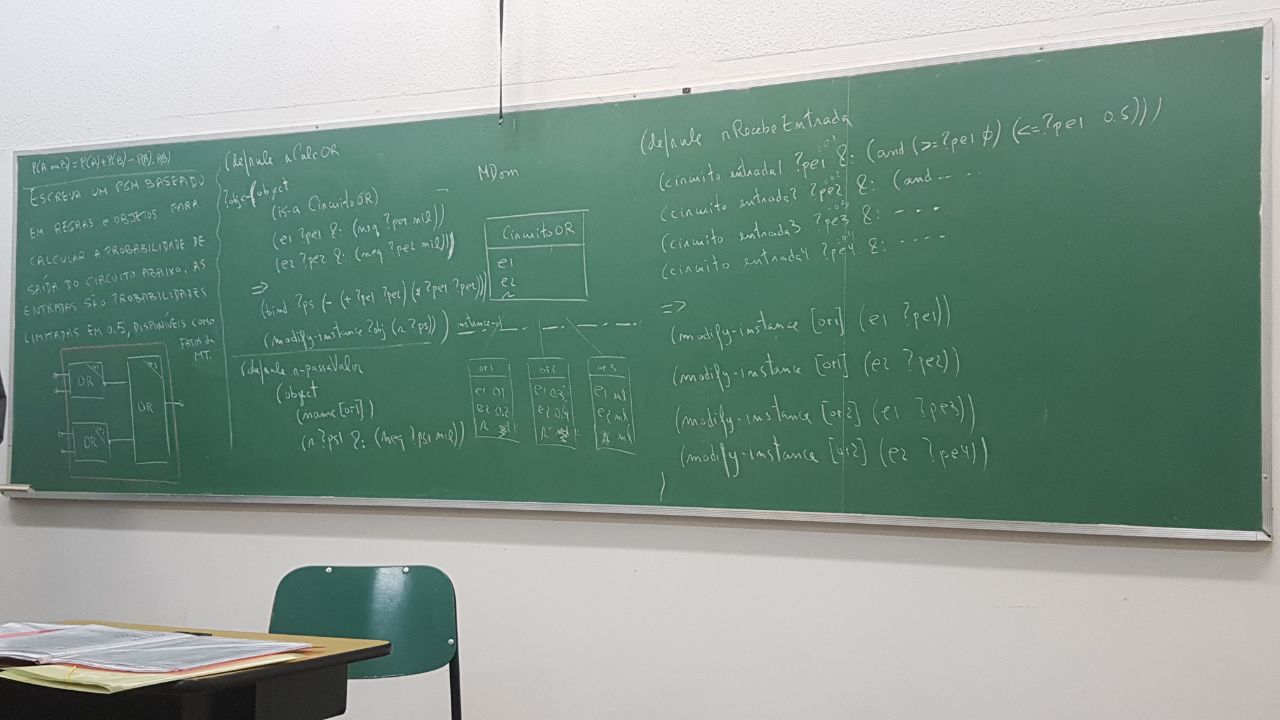 P(A or B) = P(A) + P(B) - P(A).P(B)
ESCREVA UM PGM BASEADO
EM REGRAS E OBJETOS PARA
CALCULAR A PROBABILIDADE DE
SAÍDA DO CIRCUITO ABAIXO. AS
ENTRADAS SÃO PROBABILIDADES
LIMITADAS EM 0.5, DISPONÍVEIS COMO
FATOS da
MT.
OR
OR
OR
(defrule rCalcOR
?obj<-(object
(is-a CircuitoOR)
(e1 ?pe1 &: (neq ?pe1 nil))
(e2 ?pe2 &: (neq ?pe2 nil)))
=>
(bind ?ps (- (+ ?pe1 ?pe2) (* ?pe1 ?pe2)))
(modify-instance ?obj (r ?ps)))
(defrule r-passaValor
(object
(name [or1])
(r ?ps1 &: (neq ?ps1 nil))
MDom
CircuitoOR
e1
e2
r
instance-of
or1
e1 0.1
e2 0.2
r
or2
e1 0.3
e2 0.4
r
or3
e1 nil
e2 nil
r nil
(defrule rRecebeEntrada
(circuito entrada1 ?pe1 &: (and (>= ?pe1 0) (<= ?pe1 0.5)))
(circuito entrada2 ?pe2 &: (and -- --
(circuito entrada3 ?pe3 &: - - - -
(circuito entrada4 ?pe4 &: - - - -
=>
(modify-instance [or1] (e1 ?pe1))
(modify-instance [or1] (e2 ?pe2))
(modify-instance [or2] (e1 ?pe3))
(modify-instance [or2] (e2 ?pe4))
)